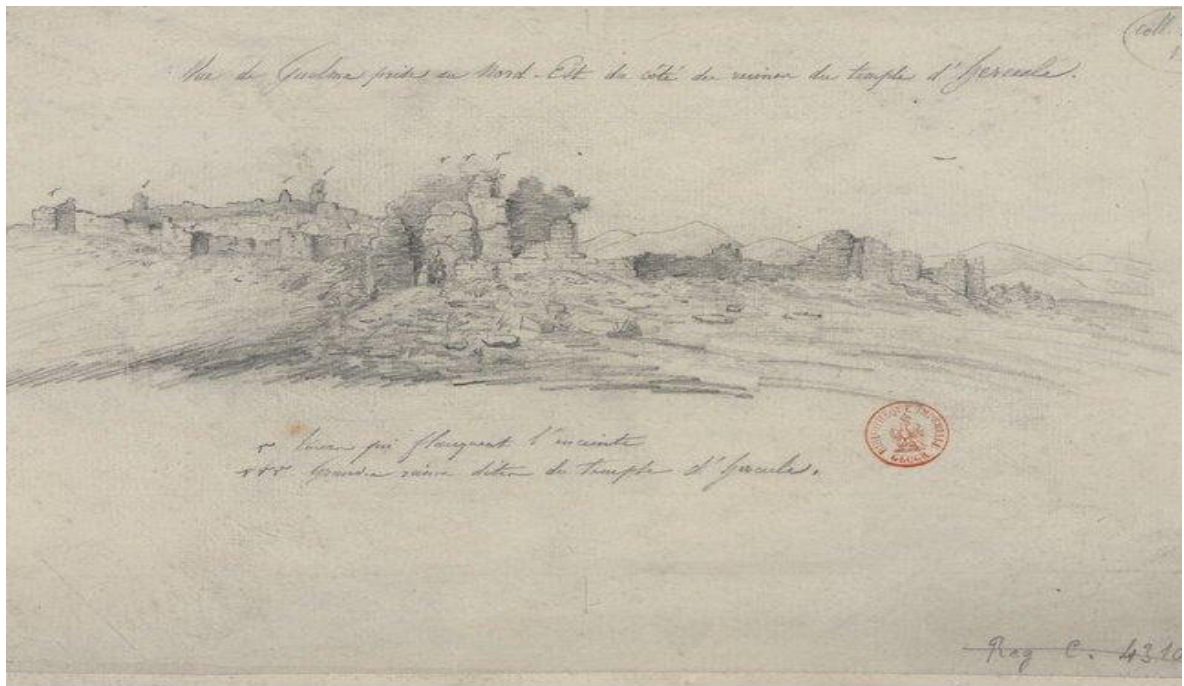 coll.
Vue de Guelma prise au Nord-Est du côté des ruines du temple d'Hercule.
Tours qui flanquent l'enceinte
Grandes ruines dites du temple d'Hercule.
BIBLIOTHEQUE IMPERIALE
Reg C. 4310